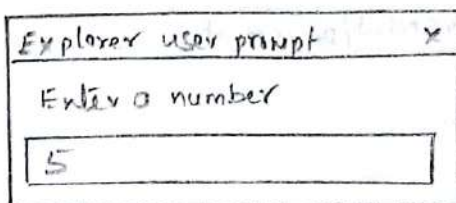 Explorer user prompt x
Enter a number
5